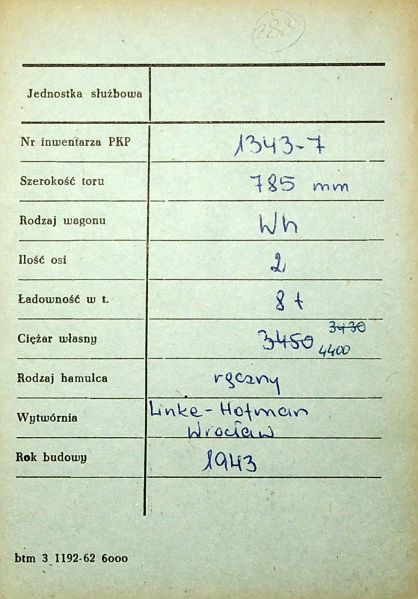 188
Jednostka służbowa
Nr inwentarza PKP 1343-7
Szerokość toru 785 mm
Rodzaj wagonu Wh
Ilość osi 2
Ładowność w t. 8 t
Ciężar własny 3450 3430
4400
Rodzaj hamulca ręczny
Wytwórnia Linke-Hofman
Wrocław
Rok budowy 1943
btm 3 1192-62 6000